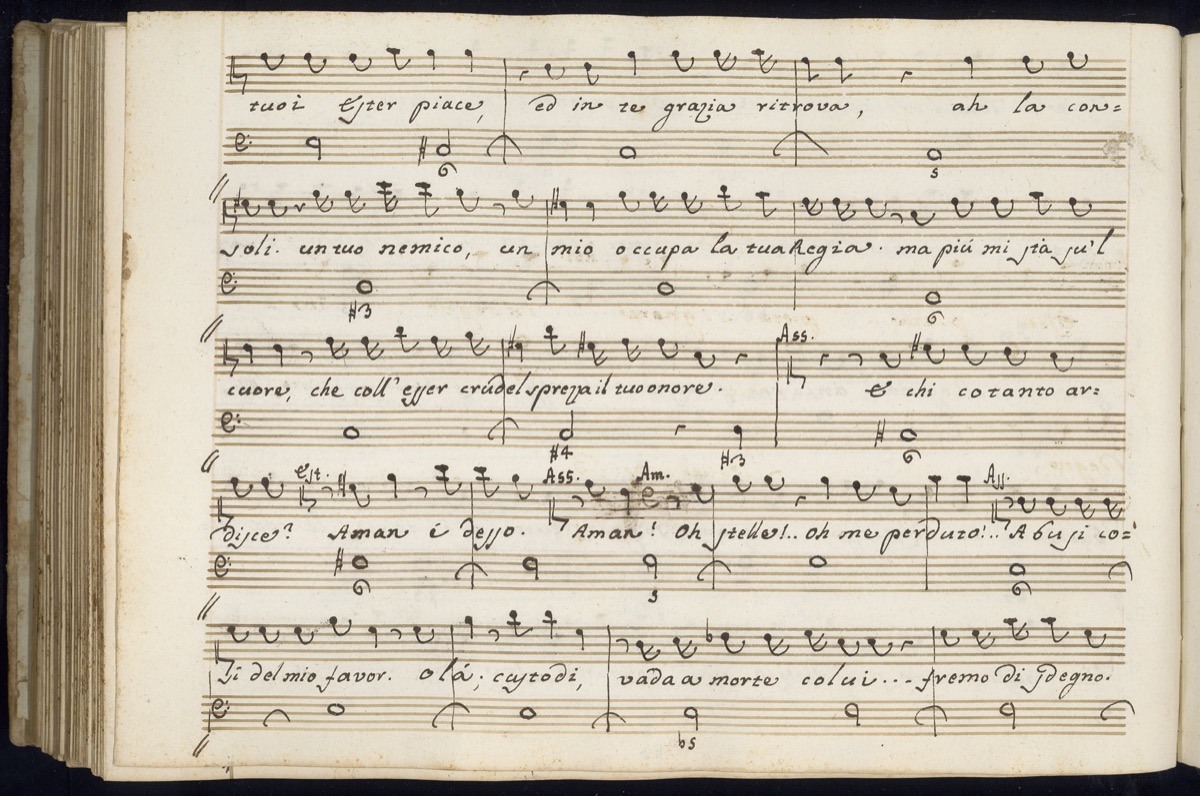 tuoi Ester piace, ed in te grazia ritrova, ah la con=
6 5
soli. un tuo nemico, un mio occupa la tua Regia. ma piú mi stà su'l
#3 6
Ass.
cuore, che coll' esser crudel sprezza il tuo onore. E chi cotanto ar=
#4 #3 6
Est. Ass. Am. Ass.
disce? Aman é desso. Aman! Oh stelle!.. Oh me perduto!.. Abusi co=
6 5 6
sí del mio favor. olá; custodi, vada a morte colui... fremo di sdegno.
b5